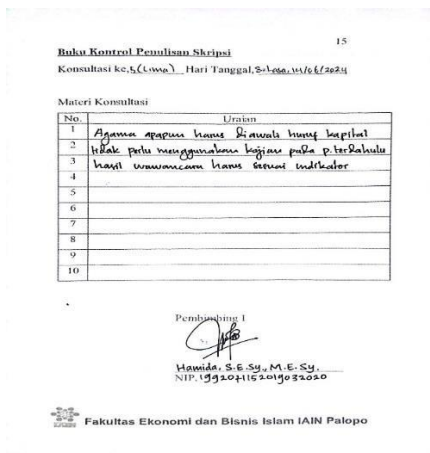 15
Buku Kontrol Penulisan Skripsi
Konsultasi ke, 5 (Lima) Hari Tanggal, Selasa, 11/06/2024
Materi Konsultasi
No. Uraian
1 Agama apapun harus diawali huruf kapital
2 tidak perlu menggunakan kajian pada p. terdahulu
3 hasil wawancara harus sesuai indikator
4
5
6
7
8
9
10
Pembimbing I
Hamida, S.E.Sy., M.E.Sy.
NIP. 199207152019032020
Fakultas Ekonomi dan Bisnis Islam IAIN Palopo